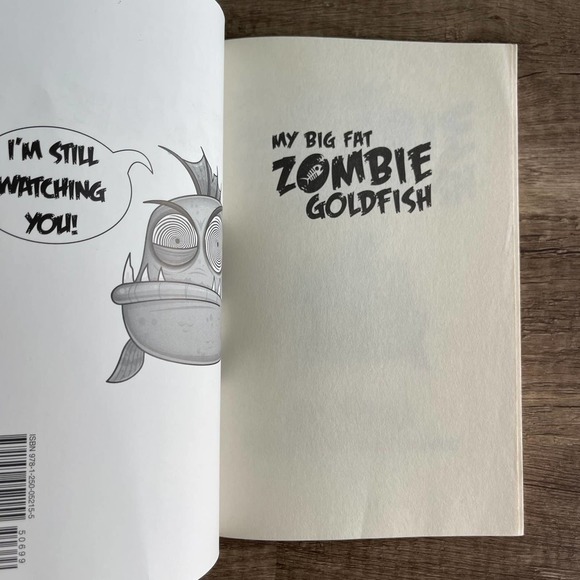 I'M STILL
WATCHING
YOU!
ISBN 978-1-250-05215-5
50699
MY BIG FAT
ZOMBIE
GOLDFISH